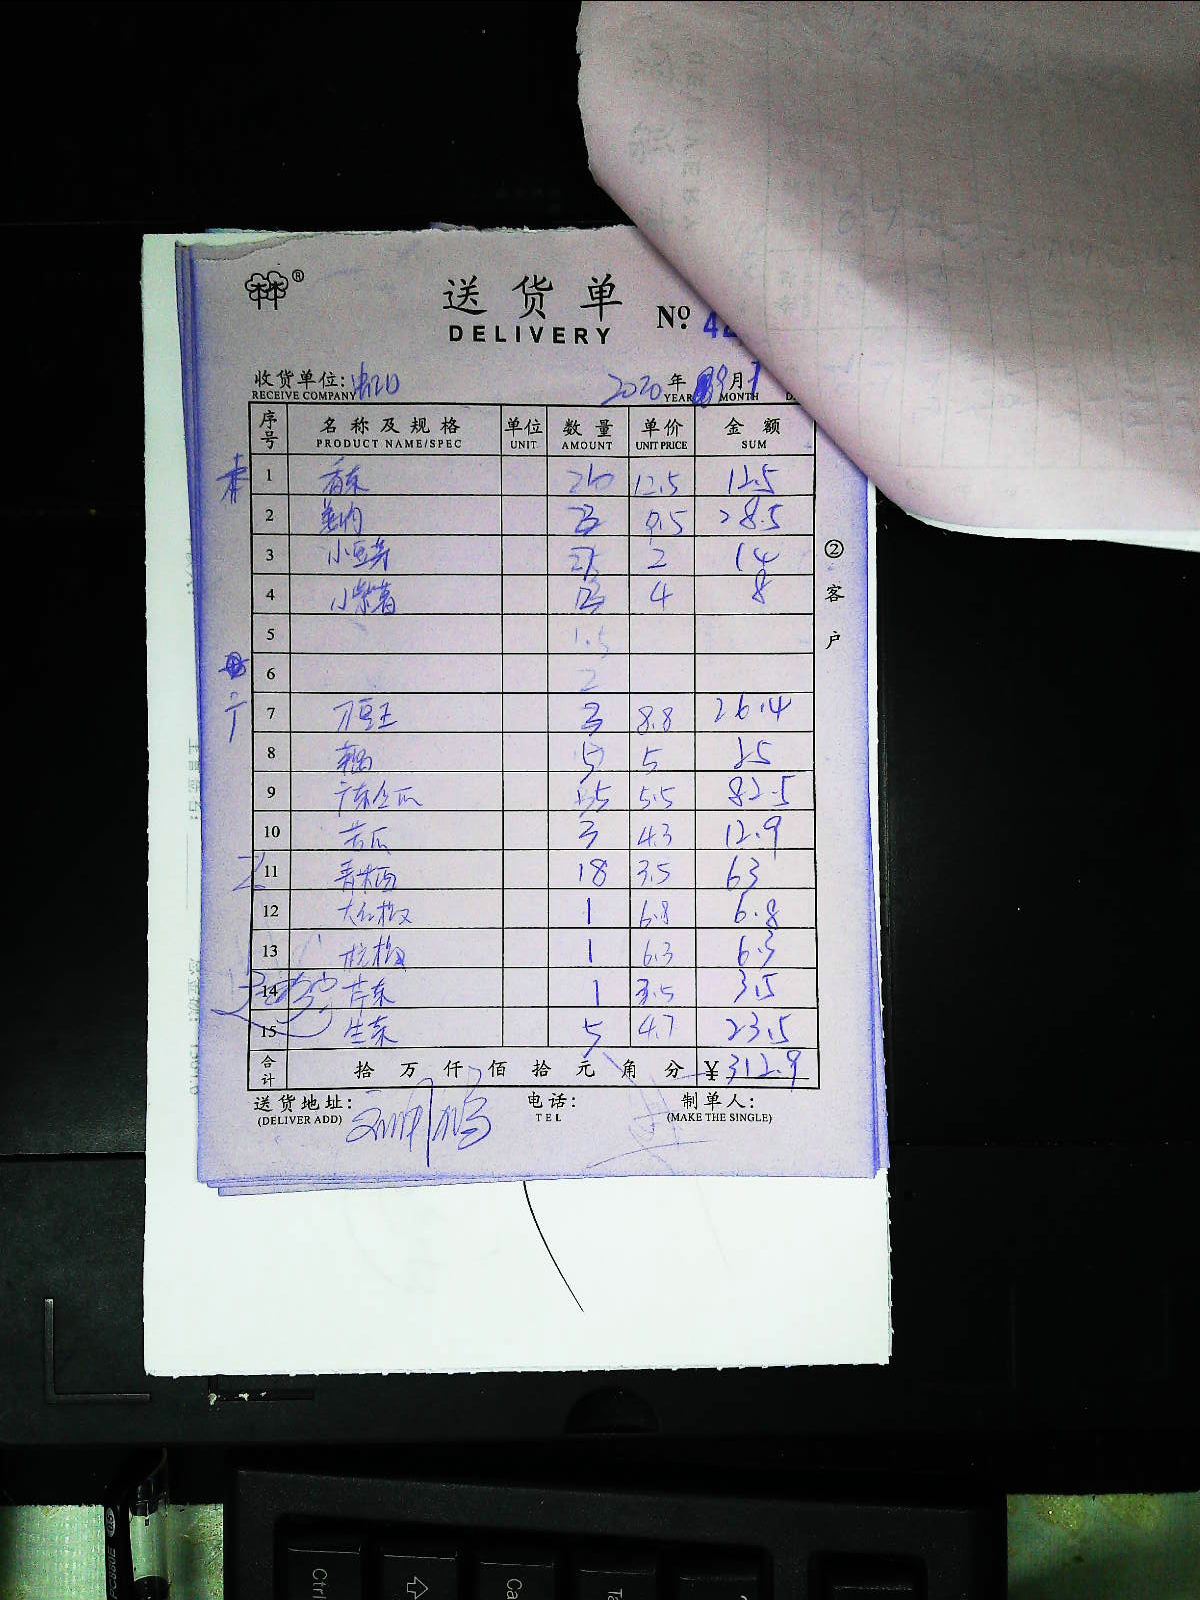 ®
送货单
DELIVERY
Nº. 42
收货单位:
RECEIVE COMPANY
2020年 9月 1
YEAR MONTH D
序号 名称及规格 单位 数量 单价 金额
PRODUCT NAME/SPEC UNIT AMOUNT UNIT PRICE SUM
1 香菜 12.5 12.5
2 9.5 28.5
3 小豆芽 2 14
4 小紫薯 4 8
5 1.5
6 2
7 刀豆王 3 8.8 26.4
8 5 5 25
9 广东丝瓜 15 5.5 82.5
10 苦瓜 3 4.3 12.9
11 18 3.5 63
12 大红椒 1 6.8 6.8
13 杭椒 1 6.3 6.3
14 芹菜 1 3.5 3.5
15 生菜 5 4.7 23.5
合计 拾万仟佰拾元角分 ¥ 312.9
送货地址: 电话: 制单人:
(DELIVER ADD) TEL (MAKE THE SINGLE)
②客户
Ctrl